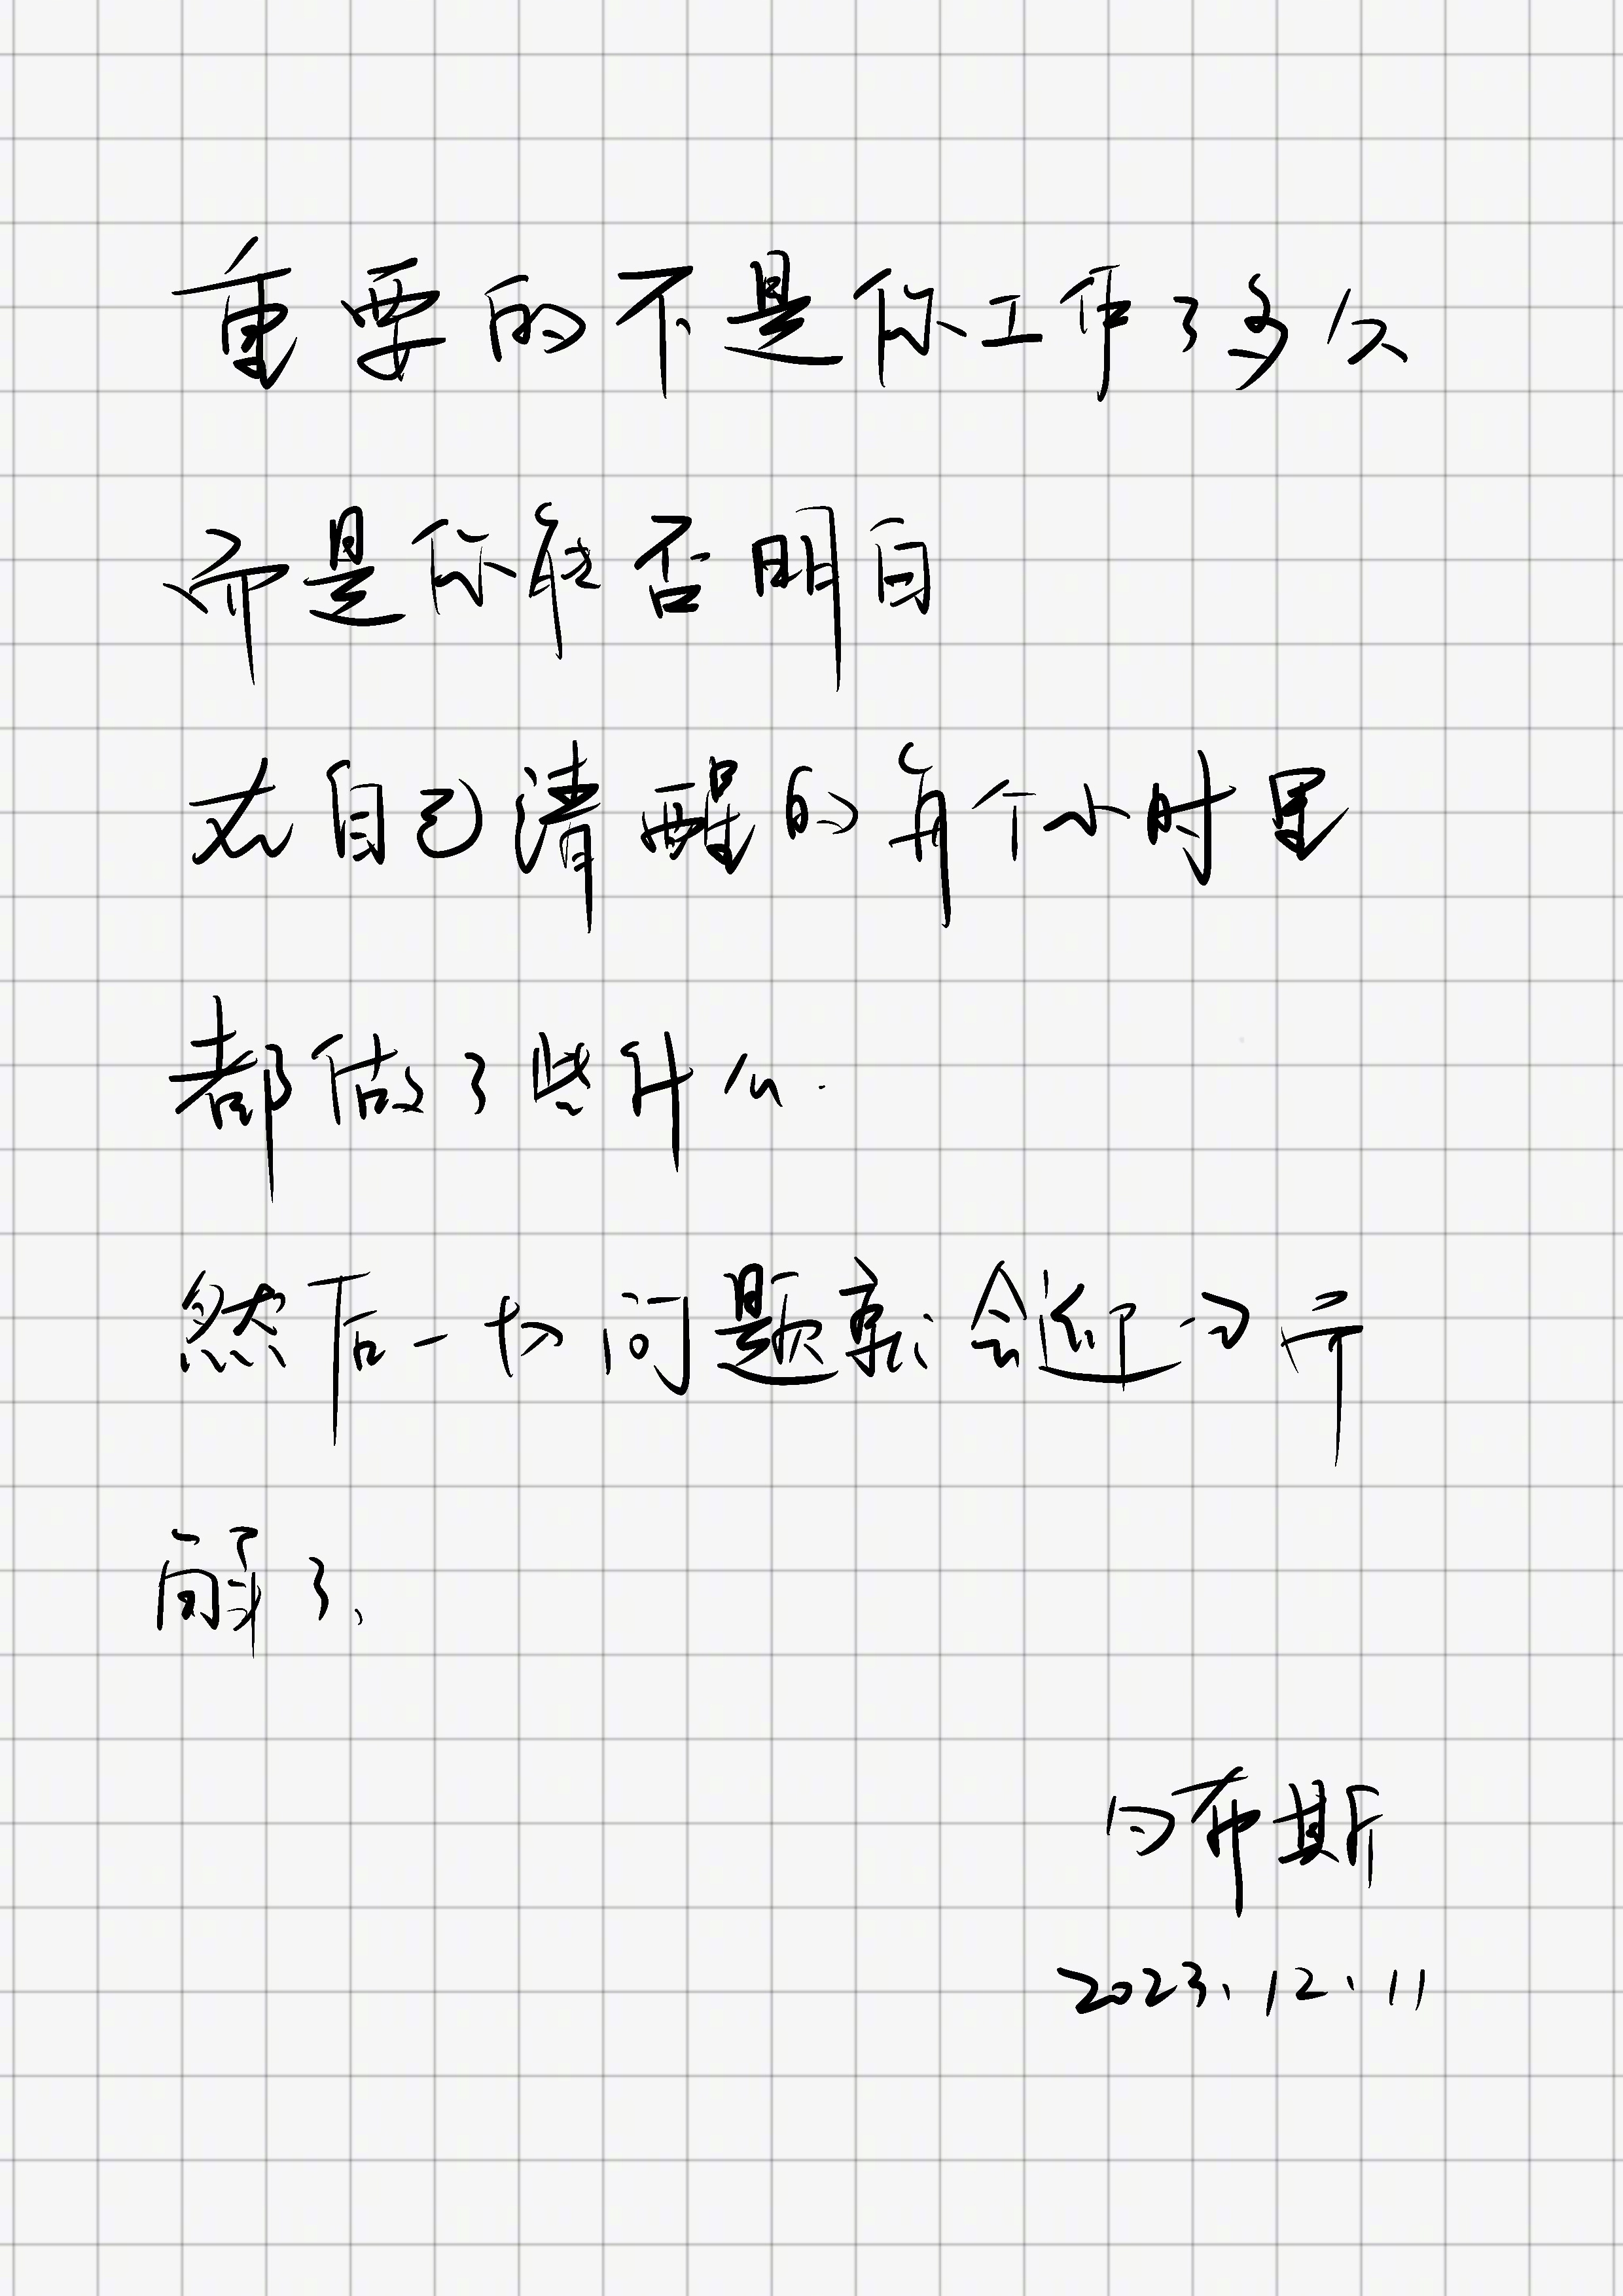 重要的不是你工作了多久
而是你能否明白
在自己清醒的每个小时里
都做了些什么.
然后一切问题就会迎刃而
解了、
布斯
2023.12.11